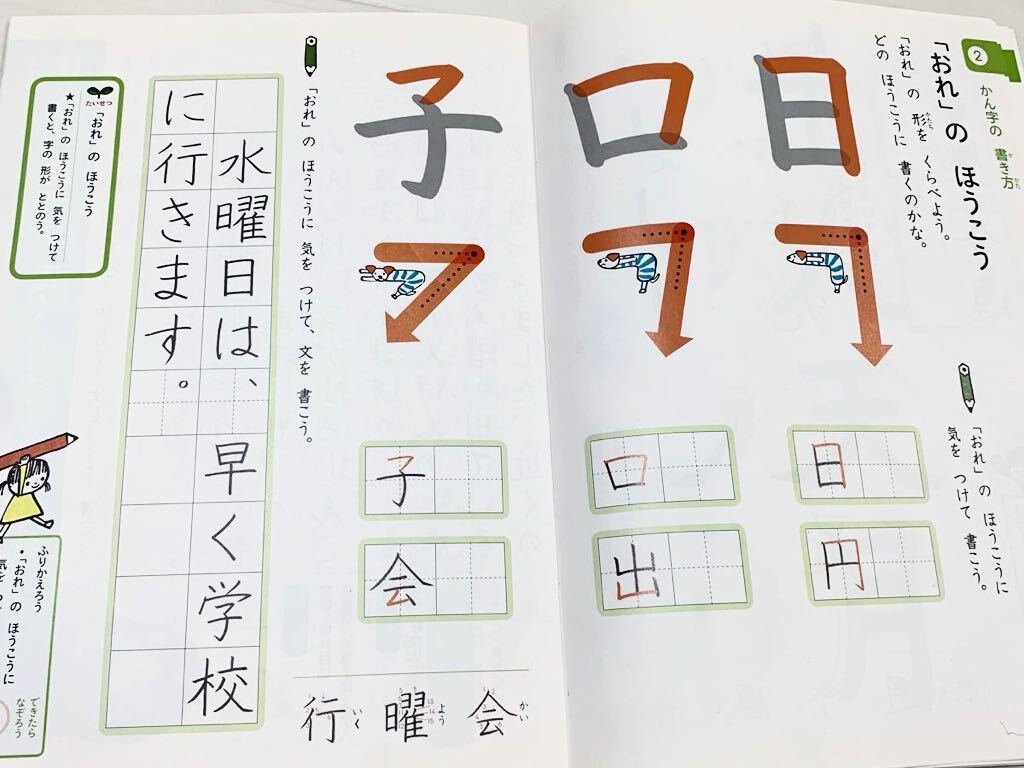 2
かん字の 書き方
かた
「おれ」の ほうこう
「おれ」の 形を くらべよう。
かたち
どの ほうこうに 書くのかな。
日
口
子
「おれ」の ほうこうに
気を つけて 書こう。
日
円
口
出
子
会
「おれ」の ほうこうに 気を つけて、文を 書こう。
会
かい
曜
よう
行
いく
水曜日は、早く学校
に行きます。
たいせつ
「おれ」の ほうこう
★「おれ」の ほうこうに 気を つけて
書くと、字の 形が ととのう。
ふりかえろう
•「おれ」の ほうこうに
できたら
なぞろう